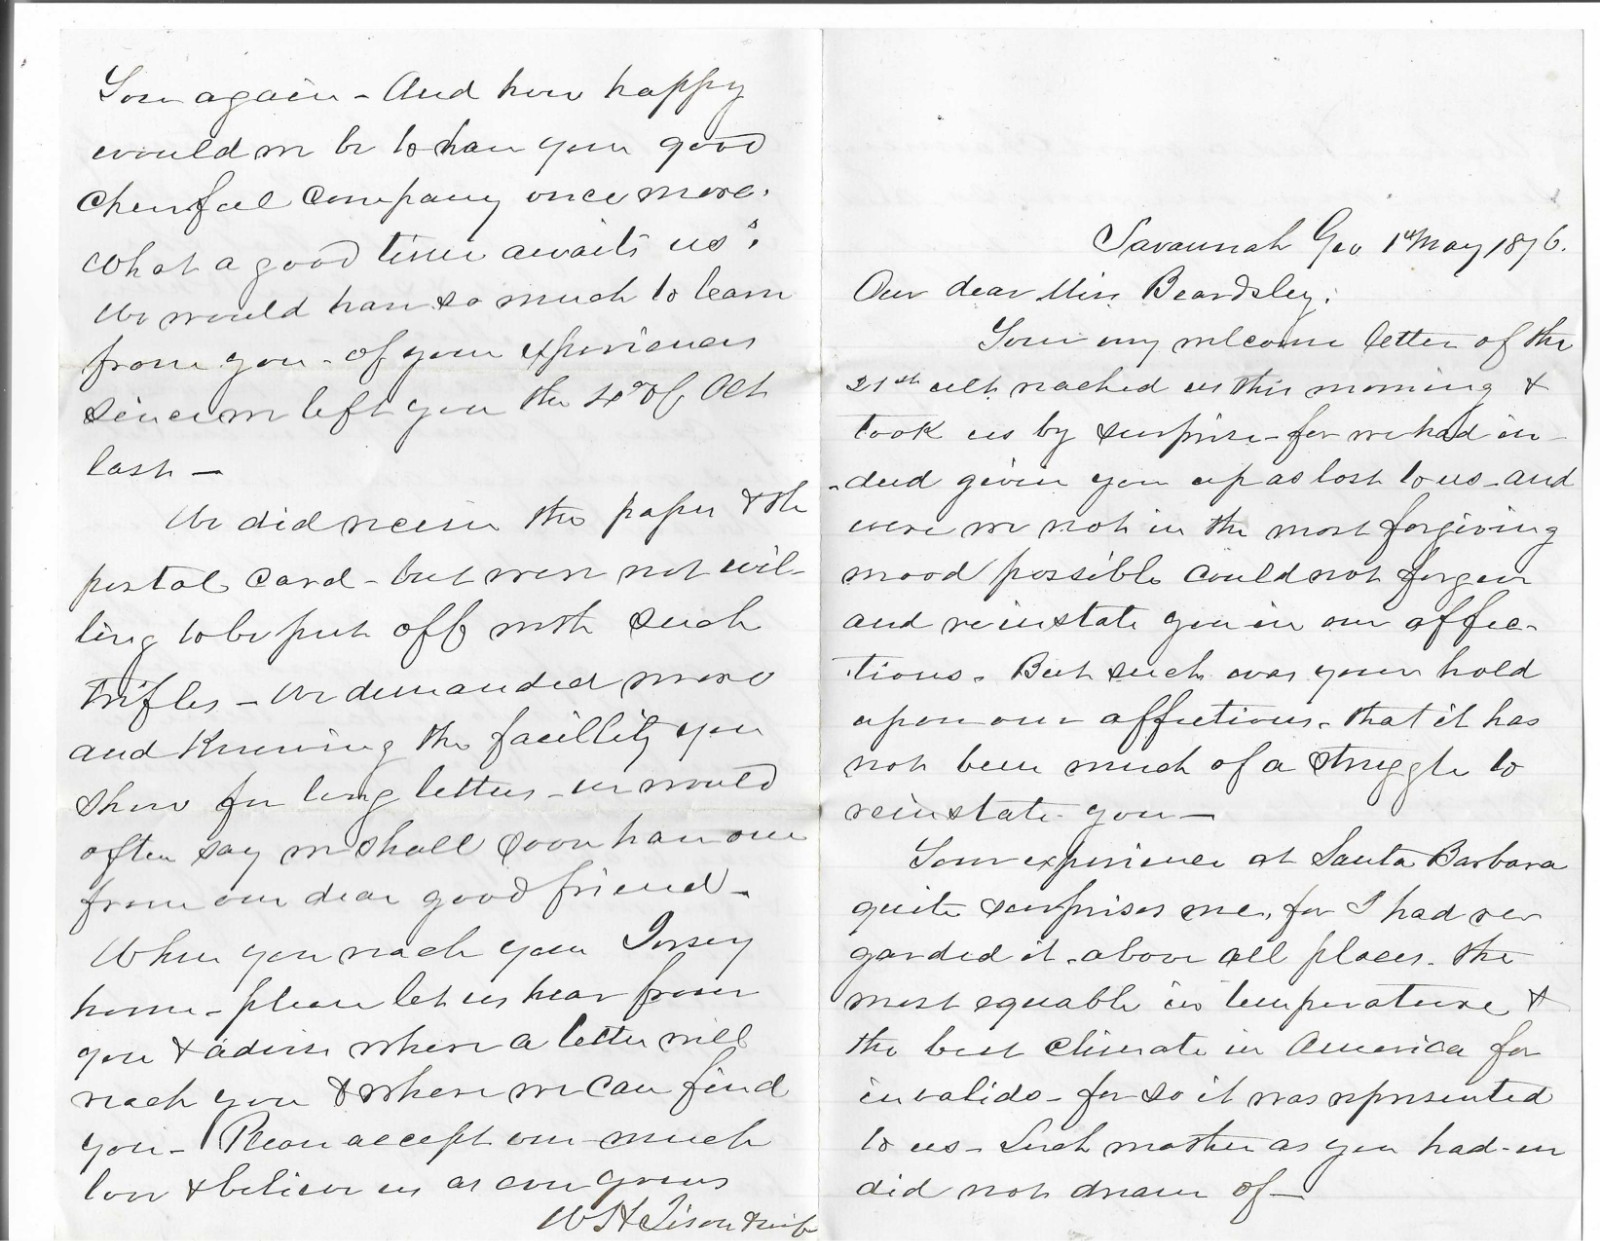 Savannah Geo 1st May 1876.
Our dear Miss Beardsley;
Your very welcome letter of the
21st ult reached us this morning &
took us by surprise - for we had in-
-deed given you up as lost to us - and
were we not in the most forgiving
mood possible could not forgive
and reinstate you in our affec-
tions. But such was your hold
upon our affections - that it has
not been much of a struggle to
reinstate you -
Your experience at Santa Barbara
quite surprises me, for I had re-
garded it - above all places - the
most equable in temperature &
the best climate in America for
invalids - for so it was represented
to us - Such weather as you had - we
did not dream of -
You again - And how happy
would we be to have your good
cheerful company once more.
What a good time awaits us!
We would have so much to learn
from you - of your experiences
since we left you the 4th of Oct
last -
We did receive the paper & the
postal card - but were not wil-
ling to be put off with such
trifles - We demanded more
and knowing the facillity you
show for long letters - we would
often say we shall soon have one
from our dear good friend -
When you reach your Jersey
home - please let us hear from
you & advise where a letter will
reach you & where we can find
you - Please accept our much
love & believe us as ever yours
W H Tison & wife